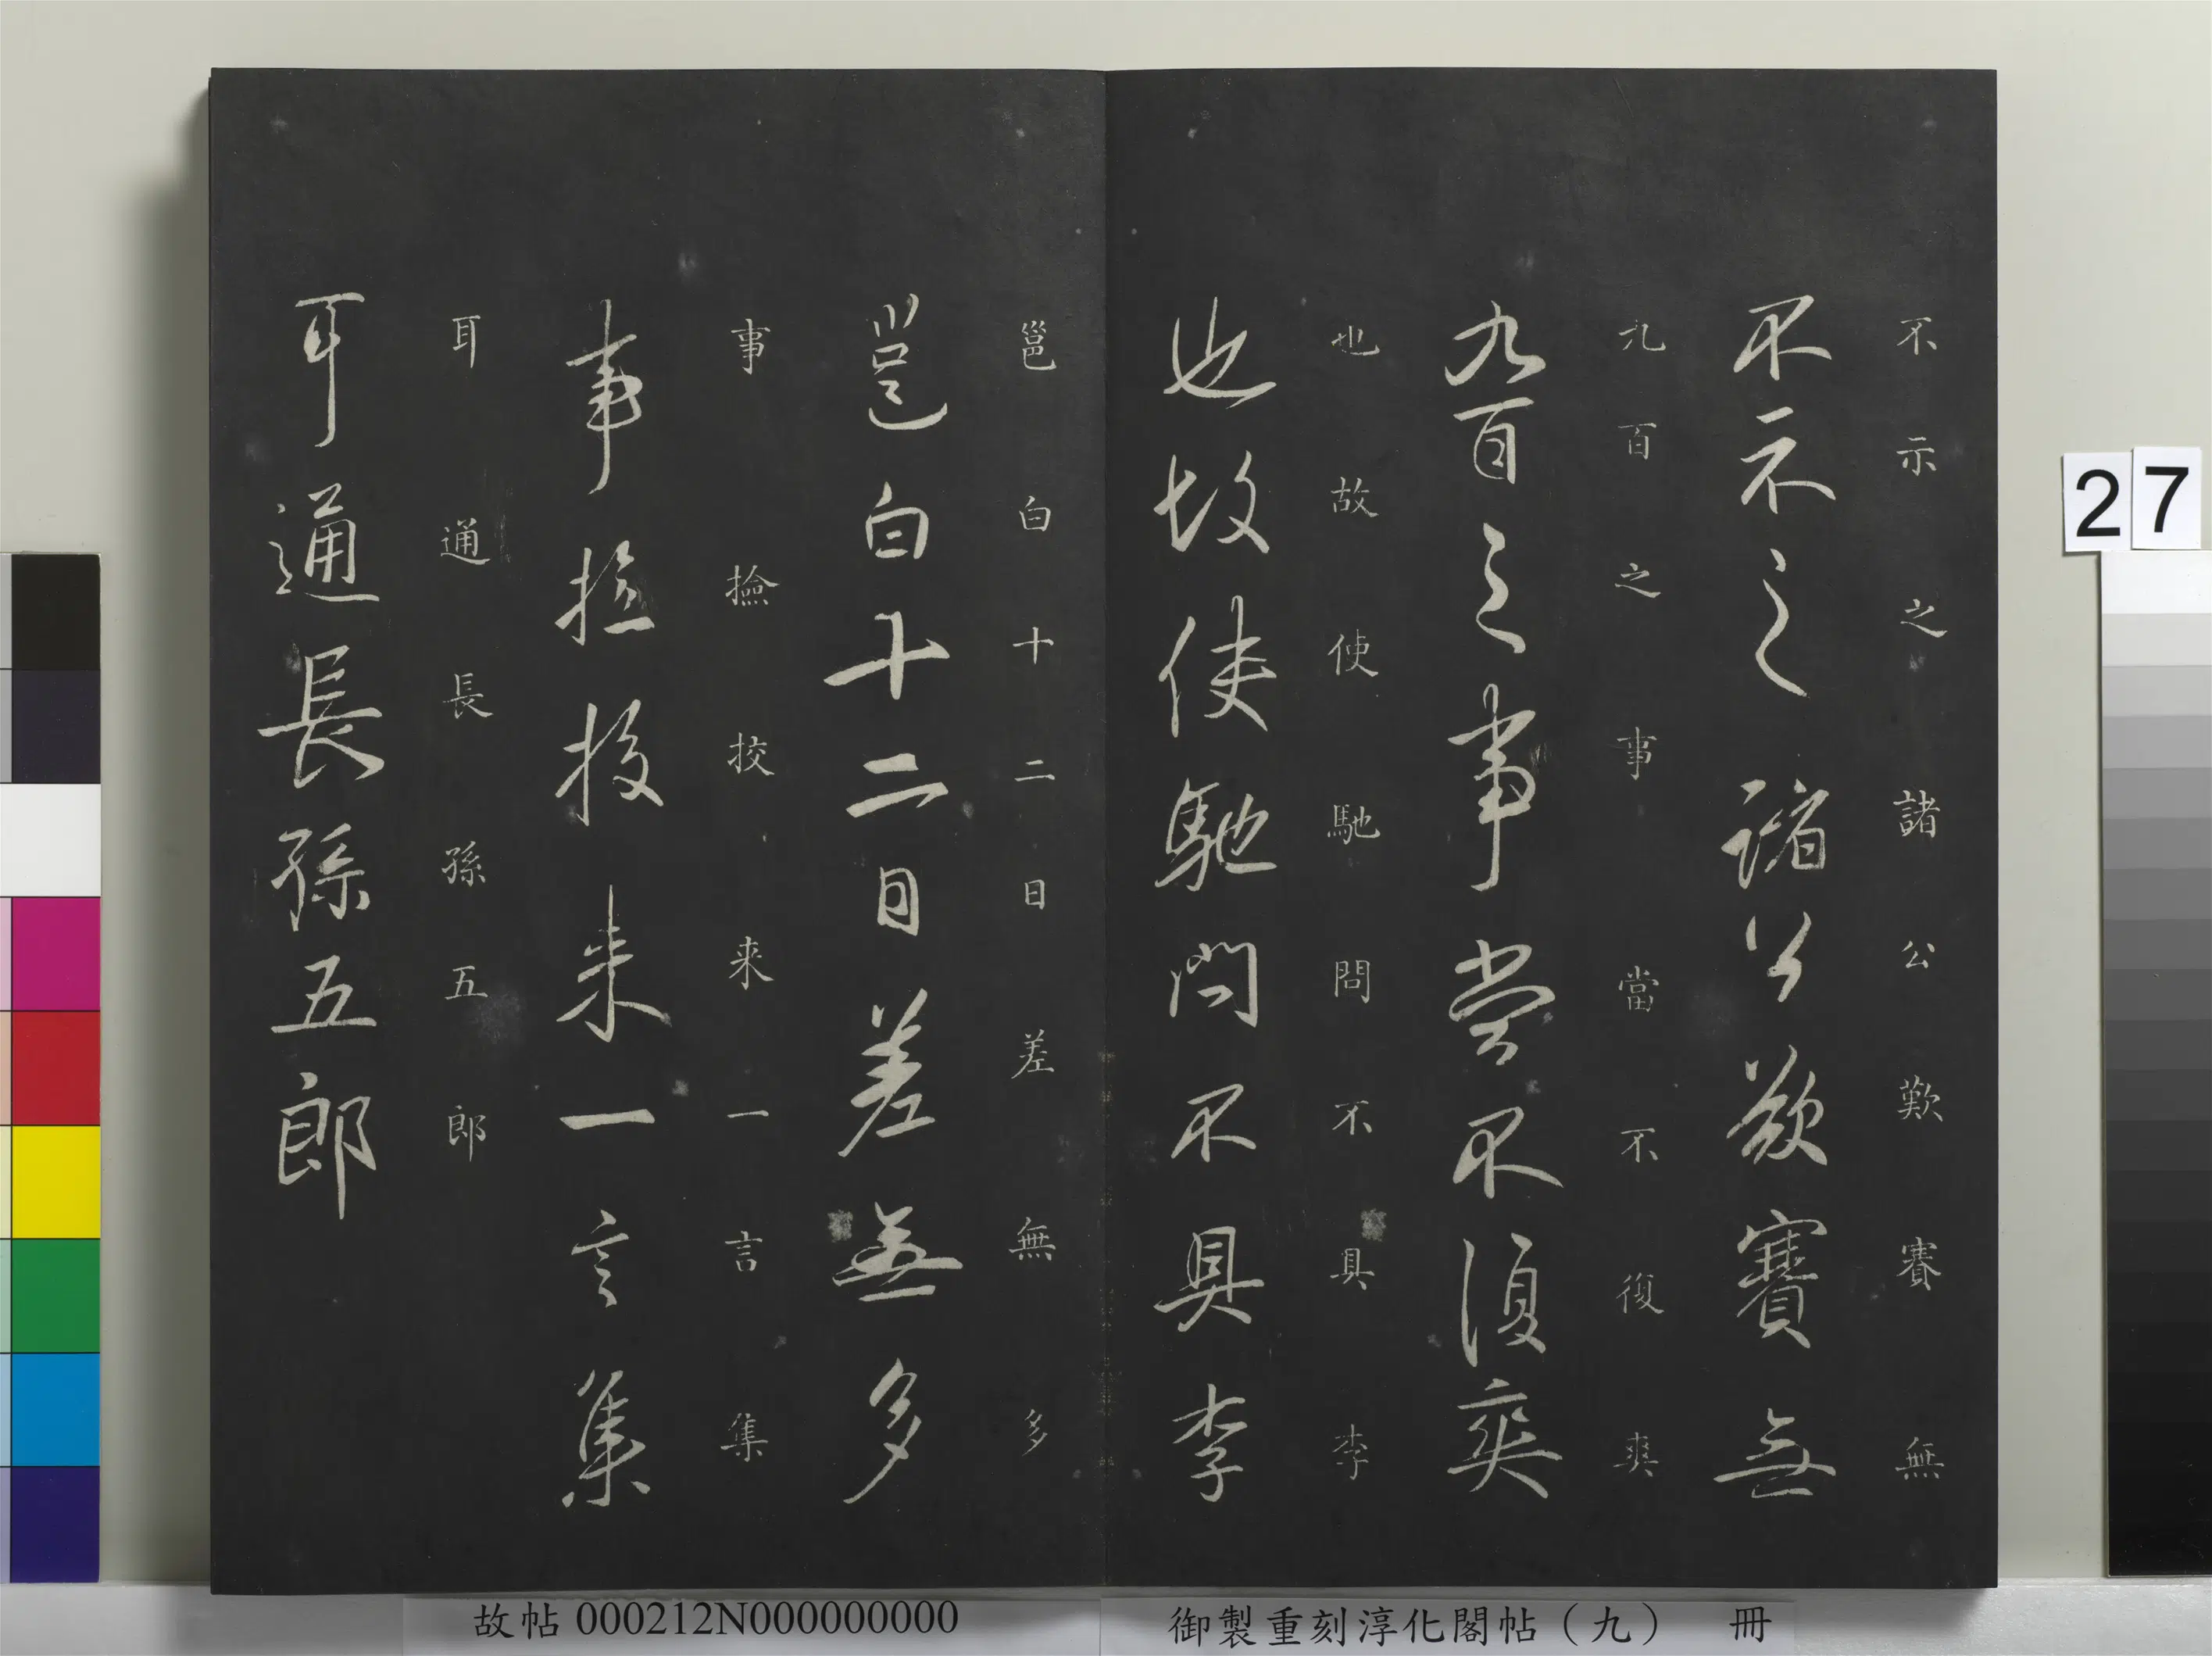 不示之諸公歎賽無
不示之諸公歎賽無
九百之事當不復爽
九百之事當不復爽
也故使馳問不具李
也故使馳問不具李
邕白十二日差無多
邕白十二日差無多
事撿挍来一言集
事撿挍来一言集
耳通長孫五郎
耳通長孫五郎
27
御製重刻淳化閣帖（九） 冊
故帖000212N000000000